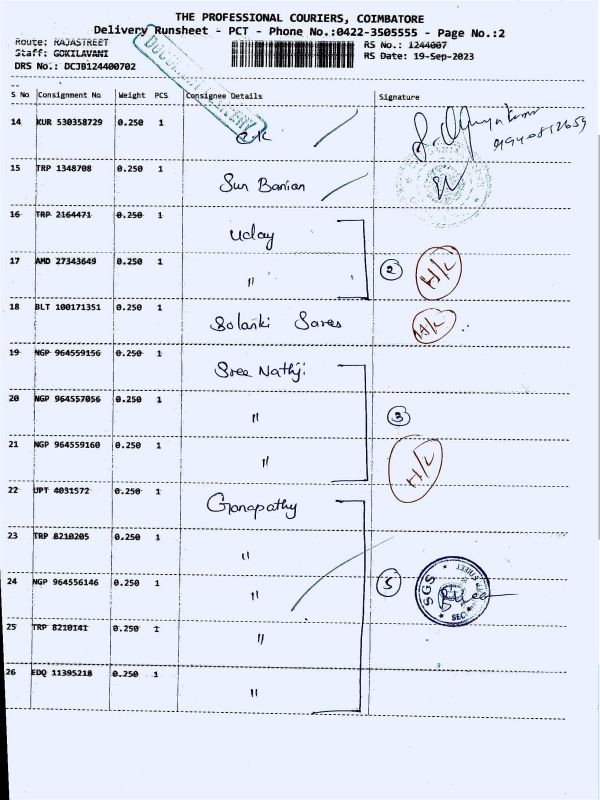 THE PROFESSIONAL COURIERS, COIMBATORE
Delivery Runsheet - PCT - Phone No.:0422-3505555 - Page No.:2
Route: RAJASTREET RS No.: 1244007
Staff: GOKILAVANI RS Date: 19-Sep-2023
DRS No.: DCJB124400702
S No Consignment No Weight PCS Consignee Details Signature
14 KUR 530358729 0.250 1
15 TRP 1348708 0.250 1 Sun Banian
16 TRP 2164471 0.250 1 Uday
17 AMD 27343649 0.250 1 " 2 H/L
18 BLT 100171351 0.250 1 Solanki Sarees H/L
19 NGP 964559156 0.250 1 Sree Nathji
20 NGP 964557056 0.250 1 " 3
21 NGP 964559160 0.250 1 " H/L
22 UPT 4031572 0.250 1 Ganapathy
23 TRP 8210205 0.250 1 "
24 NGP 964556146 0.250 1 " 5 SGS
25 TRP 8210141 0.250 1 "
26 EDQ 11395218 0.250 1 "